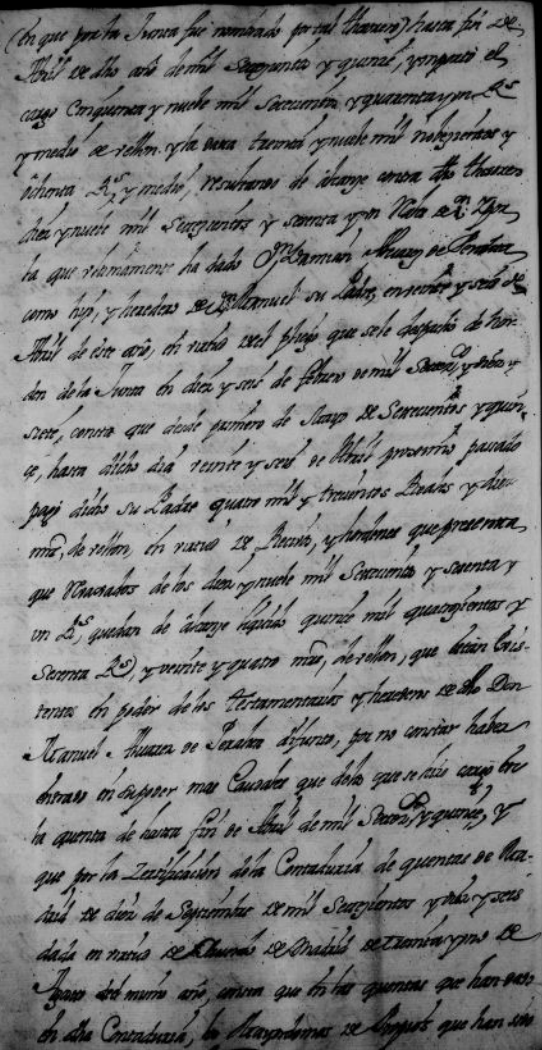 (en que por la Junta fue nombrado por tal thesorero) hasta fin de
Abril de dho año de mil Setezientos y quinze, ymporto el
cargo Cinquenta y nueve mil Setecientos y quarenta y un Rs
y medio de vellon y la data treinta y nueve mil nobezientos y
ôchenta Rs y medio, resultando de alcanze contra dho thesorero
diez y nueve mil Setezientos y sesenta y un
ta que ultimamente ha dado Dn Damian Alvarez de Peralta
como hijo, y heredero de Dn Manuel su Padre, en veinte y seis de
Abril de este año, en virtud del pliego que se le despachó de hor-
den de la Junta en diez y seis de febrero de mil Setezos y diez y
siete, consta que desde primero de Mayo de Setecientos y quin-
ze, hasta dicho dia veinte y seis de Abril proximo passado
pagó dicho su Padre quatro mil y trecientos Reales y diez
mrs, de vellon, en virtud de Recivos, y hordenes que presenta
que Vaxados de los diez y nueve mil Setecientos y sesenta y
un Rs, quedan de alcanze liquido quinze mil quatrozientos y
sesenta Rs, y veinte y quatro mrs, de vellon, que deban Exis-
tentes en poder de los testamentarios y herederos de dho Don
Manuel Alvarez de Peralta difunto, por no constar haber
entrado en su poder mas Caudales que de los que se hizo cargo en
la quenta de hasta fin de Abril de mil Setezos y quinze, y
que por la Zertificacion de la Contaduria de quentas de Ma-
drid de diez de Septiembre de mil Setezientos y diez y seis
dada en virtud de Acuerdo de Madrid de treinta y uno de
Agosto del mismo año, consta que en las quentas que han dado
en dha Contaduria, los Mayordomos de Proprios que han sido